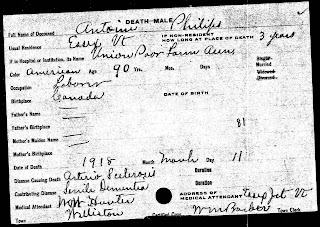 DEATH MALE
Full Name of Deceased Antoine Philips
Usual Residence Essex Vt
IF NON-RESIDENT HOW LONG AT PLACE OF DEATH 3 years
If in Hospital or Institution, Its Name Union Poor Farm
Color American Age 90 Yrs. Mos. Days
Single-
Married
Widowed-
Divorced-
Occupation Laborer
Birthplace Canada
DATE OF BIRTH
Father's Name
Father's Birthplace
Mother's Maiden Name
81
Mother's Birthplace
Date of Death 1918 Month March Day 11
Disease Causing Death Arterio Sclerosis Duration
Contributing Disease Senile Dementia Duration
Medical Attendant Hunter
ADDRESS OF MEDICAL ATTENDANT Essex Jct Vt
Town Williston
Town Clerk